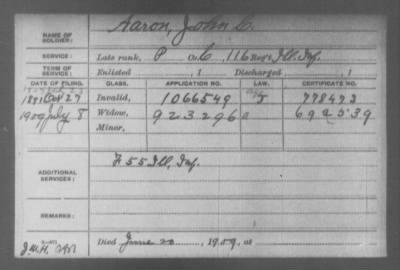 NAME OF SOLDIER: Aaron, John C.
SERVICE: Late rank, P Co. C, 116 Reg't Ill. Inf.
TERM OF SERVICE: Enlisted , 1 Discharged , 1
DATE OF FILING. CLASS. APPLICATION NO. LAW. CERTIFICATE NO.
1891 Oct 27 Invalid, 1066549 J 778473
1909 July 8 Widow, 923296 692539
Minor,
ADDITIONAL SERVICES: F 55 Ill. Inf.
REMARKS:
Died June 20, 1909, at